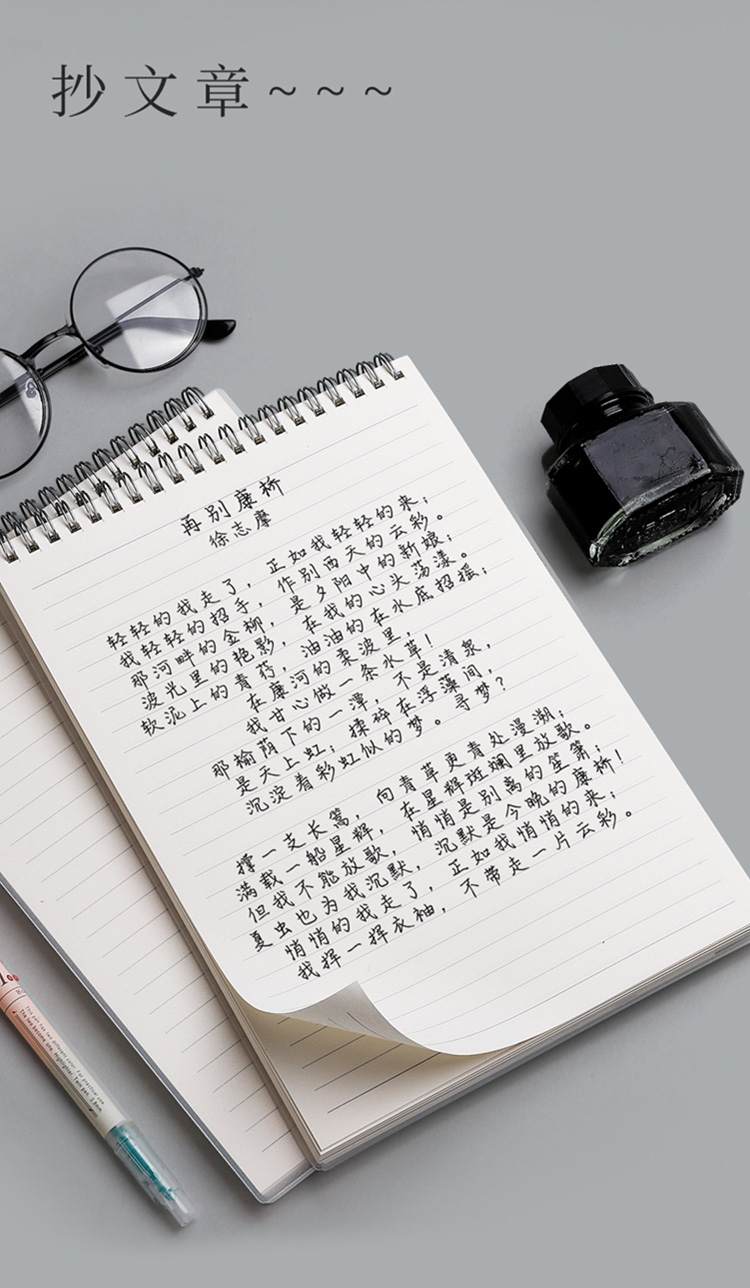 抄文章~~~
再别康桥
徐志摩
轻轻的我走了，正如我轻轻的来；
我轻轻的招手，作别西天的云彩。
那河畔的金柳，是夕阳中的新娘；
波光里的艳影，在我的心头荡漾。
软泥上的青荇，油油的在水底招摇；
在康河的柔波里，
我甘心做一条水草！
那榆荫下的一潭，不是清泉，
是天上虹；揉碎在浮藻间，
沉淀着彩虹似的梦。寻梦？
撑一支长篙，向青草更青处漫溯；
满载一船星辉，在星辉斑斓里放歌。
但我不能放歌，悄悄是别离的笙箫；
夏虫也为我沉默，沉默是今晚的康桥！
悄悄的我走了，正如我悄悄的来；
我挥一挥衣袖，不带走一片云彩。
This pen has two different color. For practical use.
The two become one. Highlighter, Twin pen.